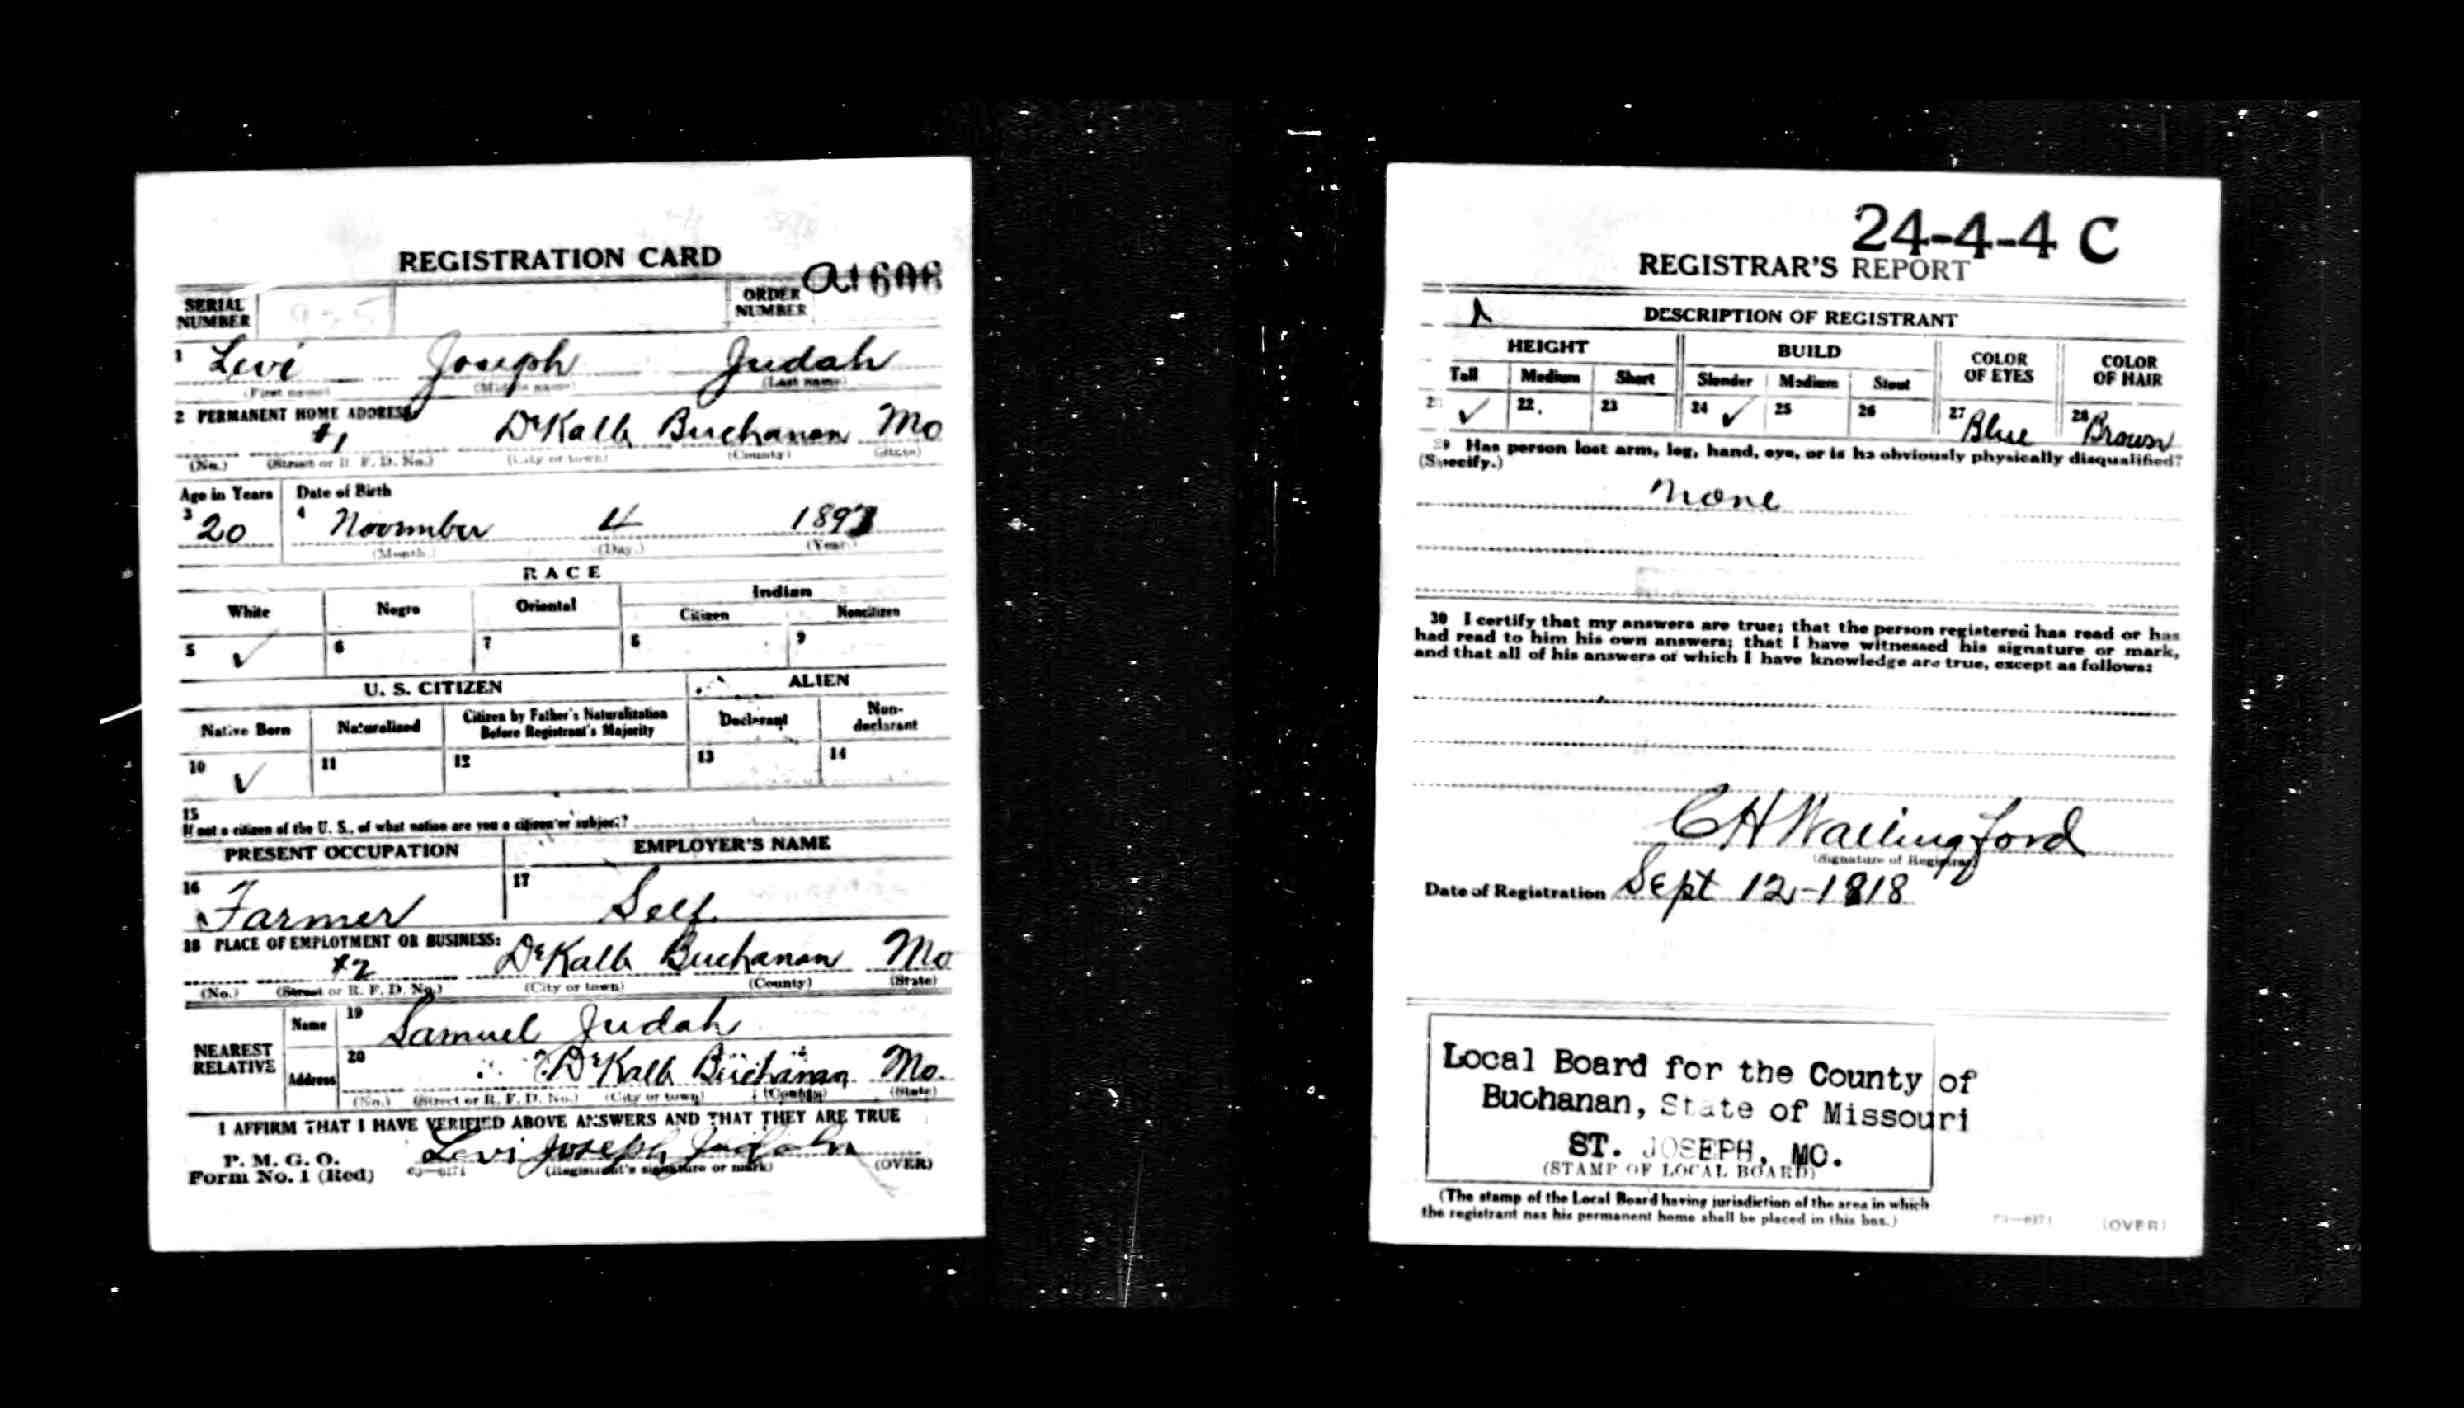 REGISTRATION CARD
SERIAL NUMBER
ORDER NUMBER
1 Levi Joseph Judah
(First name) (Middle name) (Last name)
2 PERMANENT HOME ADDRESS
#1 DeKalb Buchanan Mo
(No.) (Street or R. F. D. No.) (City or town) (County) (State)
Age in Years Date of Birth
3 20 4 November 4
(Month.) (Day.) (Year.)
RACE
White Negro Oriental Indian
Citizen Noncitizen
5 ✓ 6 7 8 9
U. S. CITIZEN ALIEN
Native Born Naturalized Citizen by Father's Naturalization Before Registrant's Majority Declarant Non-declarant
10 ✓ 11 12 13 14
15
If not a citizen of the U. S., of what nation are you a citizen or subject?
PRESENT OCCUPATION EMPLOYER'S NAME
16 Farmer 17 Self
18 PLACE OF EMPLOYMENT OR BUSINESS:
#2 DeKalb Buchanan Mo
(No.) (Street or R. F. D. No.) (City or town) (County) (State)
NEAREST RELATIVE
Name 19 Samuel Judah
Address 20 DeKalb Buchanan Mo.
(No.) (Street or R. F. D. No.) (City or town) (County) (State)
I AFFIRM THAT I HAVE VERIFIED ABOVE ANSWERS AND THAT THEY ARE TRUE
P. M. G. O.
Form No. 1 (Red) Levi Joseph Judah
(Registrant's signature or mark) (OVER)
24-4-4 C
REGISTRAR'S REPORT
DESCRIPTION OF REGISTRANT
HEIGHT BUILD COLOR OF EYES COLOR OF HAIR
Tall Medium Short Slender Medium Stout
✓ 22 23 24 ✓ 25 26 27 Blue 28 Brown
29 Has person lost arm, leg, hand, eye, or is he obviously physically disqualified?
(Specify.)
None
30 I certify that my answers are true; that the person registered has read or has
had read to him his own answers; that I have witnessed his signature or mark,
and that all of his answers of which I have knowledge are true, except as follows:
C H Wallingford
(Signature of Registrar)
Date of Registration Sept 12-1918
Local Board for the County of
Buchanan, State of Missouri
ST. JOSEPH, MO.
(STAMP OF LOCAL BOARD)
(The stamp of the Local Board having jurisdiction of the area in which
the registrant has his permanent home shall be placed in this box.)
(OVER)